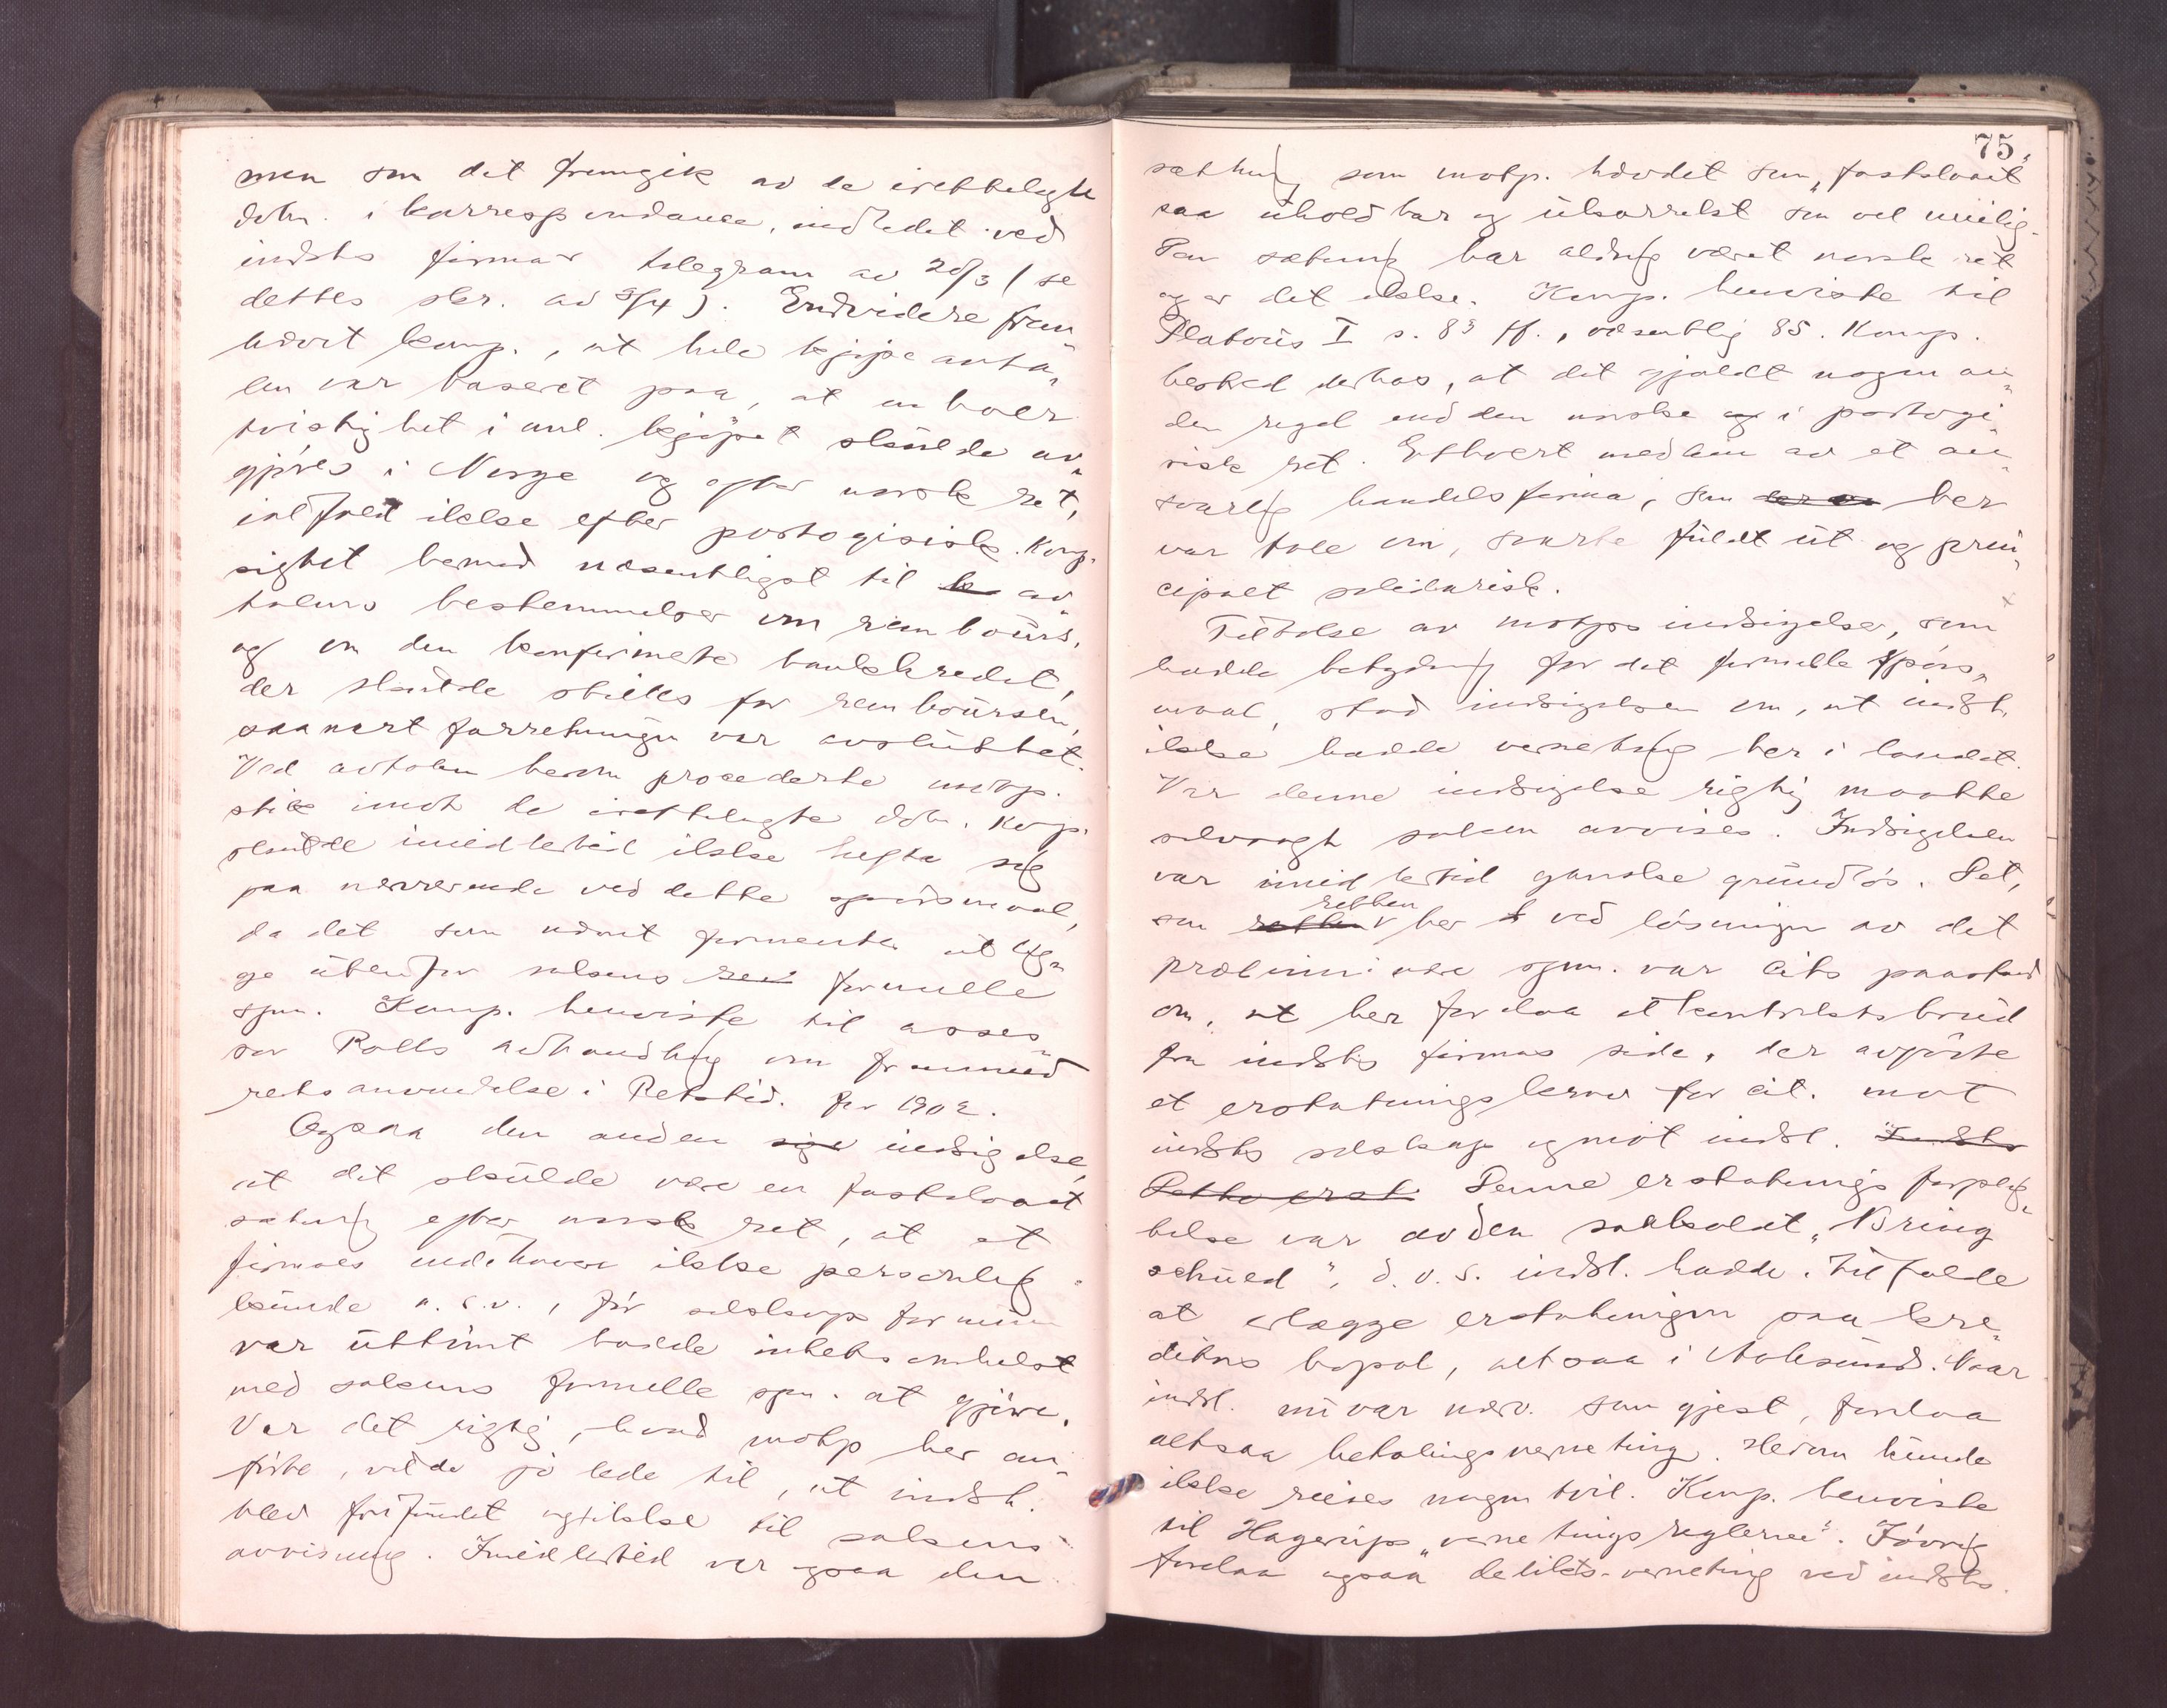 men som det fremgik av de irettelagte
dokm. i korrespondance, indledet ved
indsts firmas telegram av 20/3 (se
dettes skr. av 3/4). Endvidere frem
hævet komp., at hele kjøpeavta„
len var baseret paa, at enhver
tvistighet i anl. kjøpet skulde av„
gjøres i Norge og efter norsk ret,
ialfald ikke efter portogisisk. Komp.
sigtet herved væsentligst til av„
talens bestemmelser om rembours,
og om den konfirmerte bankkredit,
der skulde stilles for remboursen,
saasnart forretningen var avsluttet.
Ved avtalen herom procederte motp.
stik imot de irettelagte dokm. Komp.
skulde imidlertid ikke hefte sig
paa nærværende ved dette spørsmaal,
da det som nævnt formentes at lig„
ge utenfor sakens formelle
spm. Komp. henviste til asses„
sor Rolls avhandling om fremmed
rets anvendelse i Retstid. for 1902.
Ogsaa den anden indsigelse,
at det skulde være en fastslaaet
sætning efter norsk ret, at et
firmas indehaver ikke personlig
kunde o.s.v., før selskapsformuen
var uttømt hadde intetsomhelst
med sakens formelle spm. at gjøre.
Var det rigtig, hvad motp her an„
førte, vilde jo lede til, at indst.
blev frifundet og ikke til sakens
avvisning. Imidlertid var ogsaa den
75,
sætning som motp. hævdet som „fastslaaet"
saa uholdbar og ukorrekt som vel mulig.
Den sætning har aldrig været norsk ret
og er det ikke. Komp. henviste til
Platous I s. 83 ff., væsentlig 85. Komp.
bestred derhos, at det gjaldt nogen an„
den regel end den norske i portogi„
sisk ret. Ethvert medlem av et an„
svarlig handelsfirma, som her
var tale om, svarte fuldt ut og prin„
cipalt solidarisk.
Tilbake av motps indsigelser, som
hadde betydning for det formelle spørs„
maal, stod indsigelsen om, at indst.
ikke hadde verneting her i landet.
Var denne indsigelse rigtig maatte
selvsagt saken avvises. Indsigelsen
var imidlertid ganske grundløs. Det,
som retten her ved løsningen av det
præliminære spm. var cits paastand
om, at her forelaa et kontraktsbrud
fra indsts firmas side, der avgjørte
et erstatningskrav for cit. mot
indsts selskap og mot indst. Indsts
Dette erst. Denne erstatningsforplig„
telse var av den saakaldt „Bring
schuld", d.v.s. indst. hadde i tilfælde
at erlægge erstatningen paa kre„
ditors bopæl, altsaa i Aalesund. Naar
indst. nu var nærv. som gjest, forelaa
altsaa betalingsverneting. Herom kunde
ikke reises nogen tvil. Komp. henviste
til Hagerups „vernetingsreglerne". Iøvrig
forelaa ogsaa delikts-verneting ved indsts.